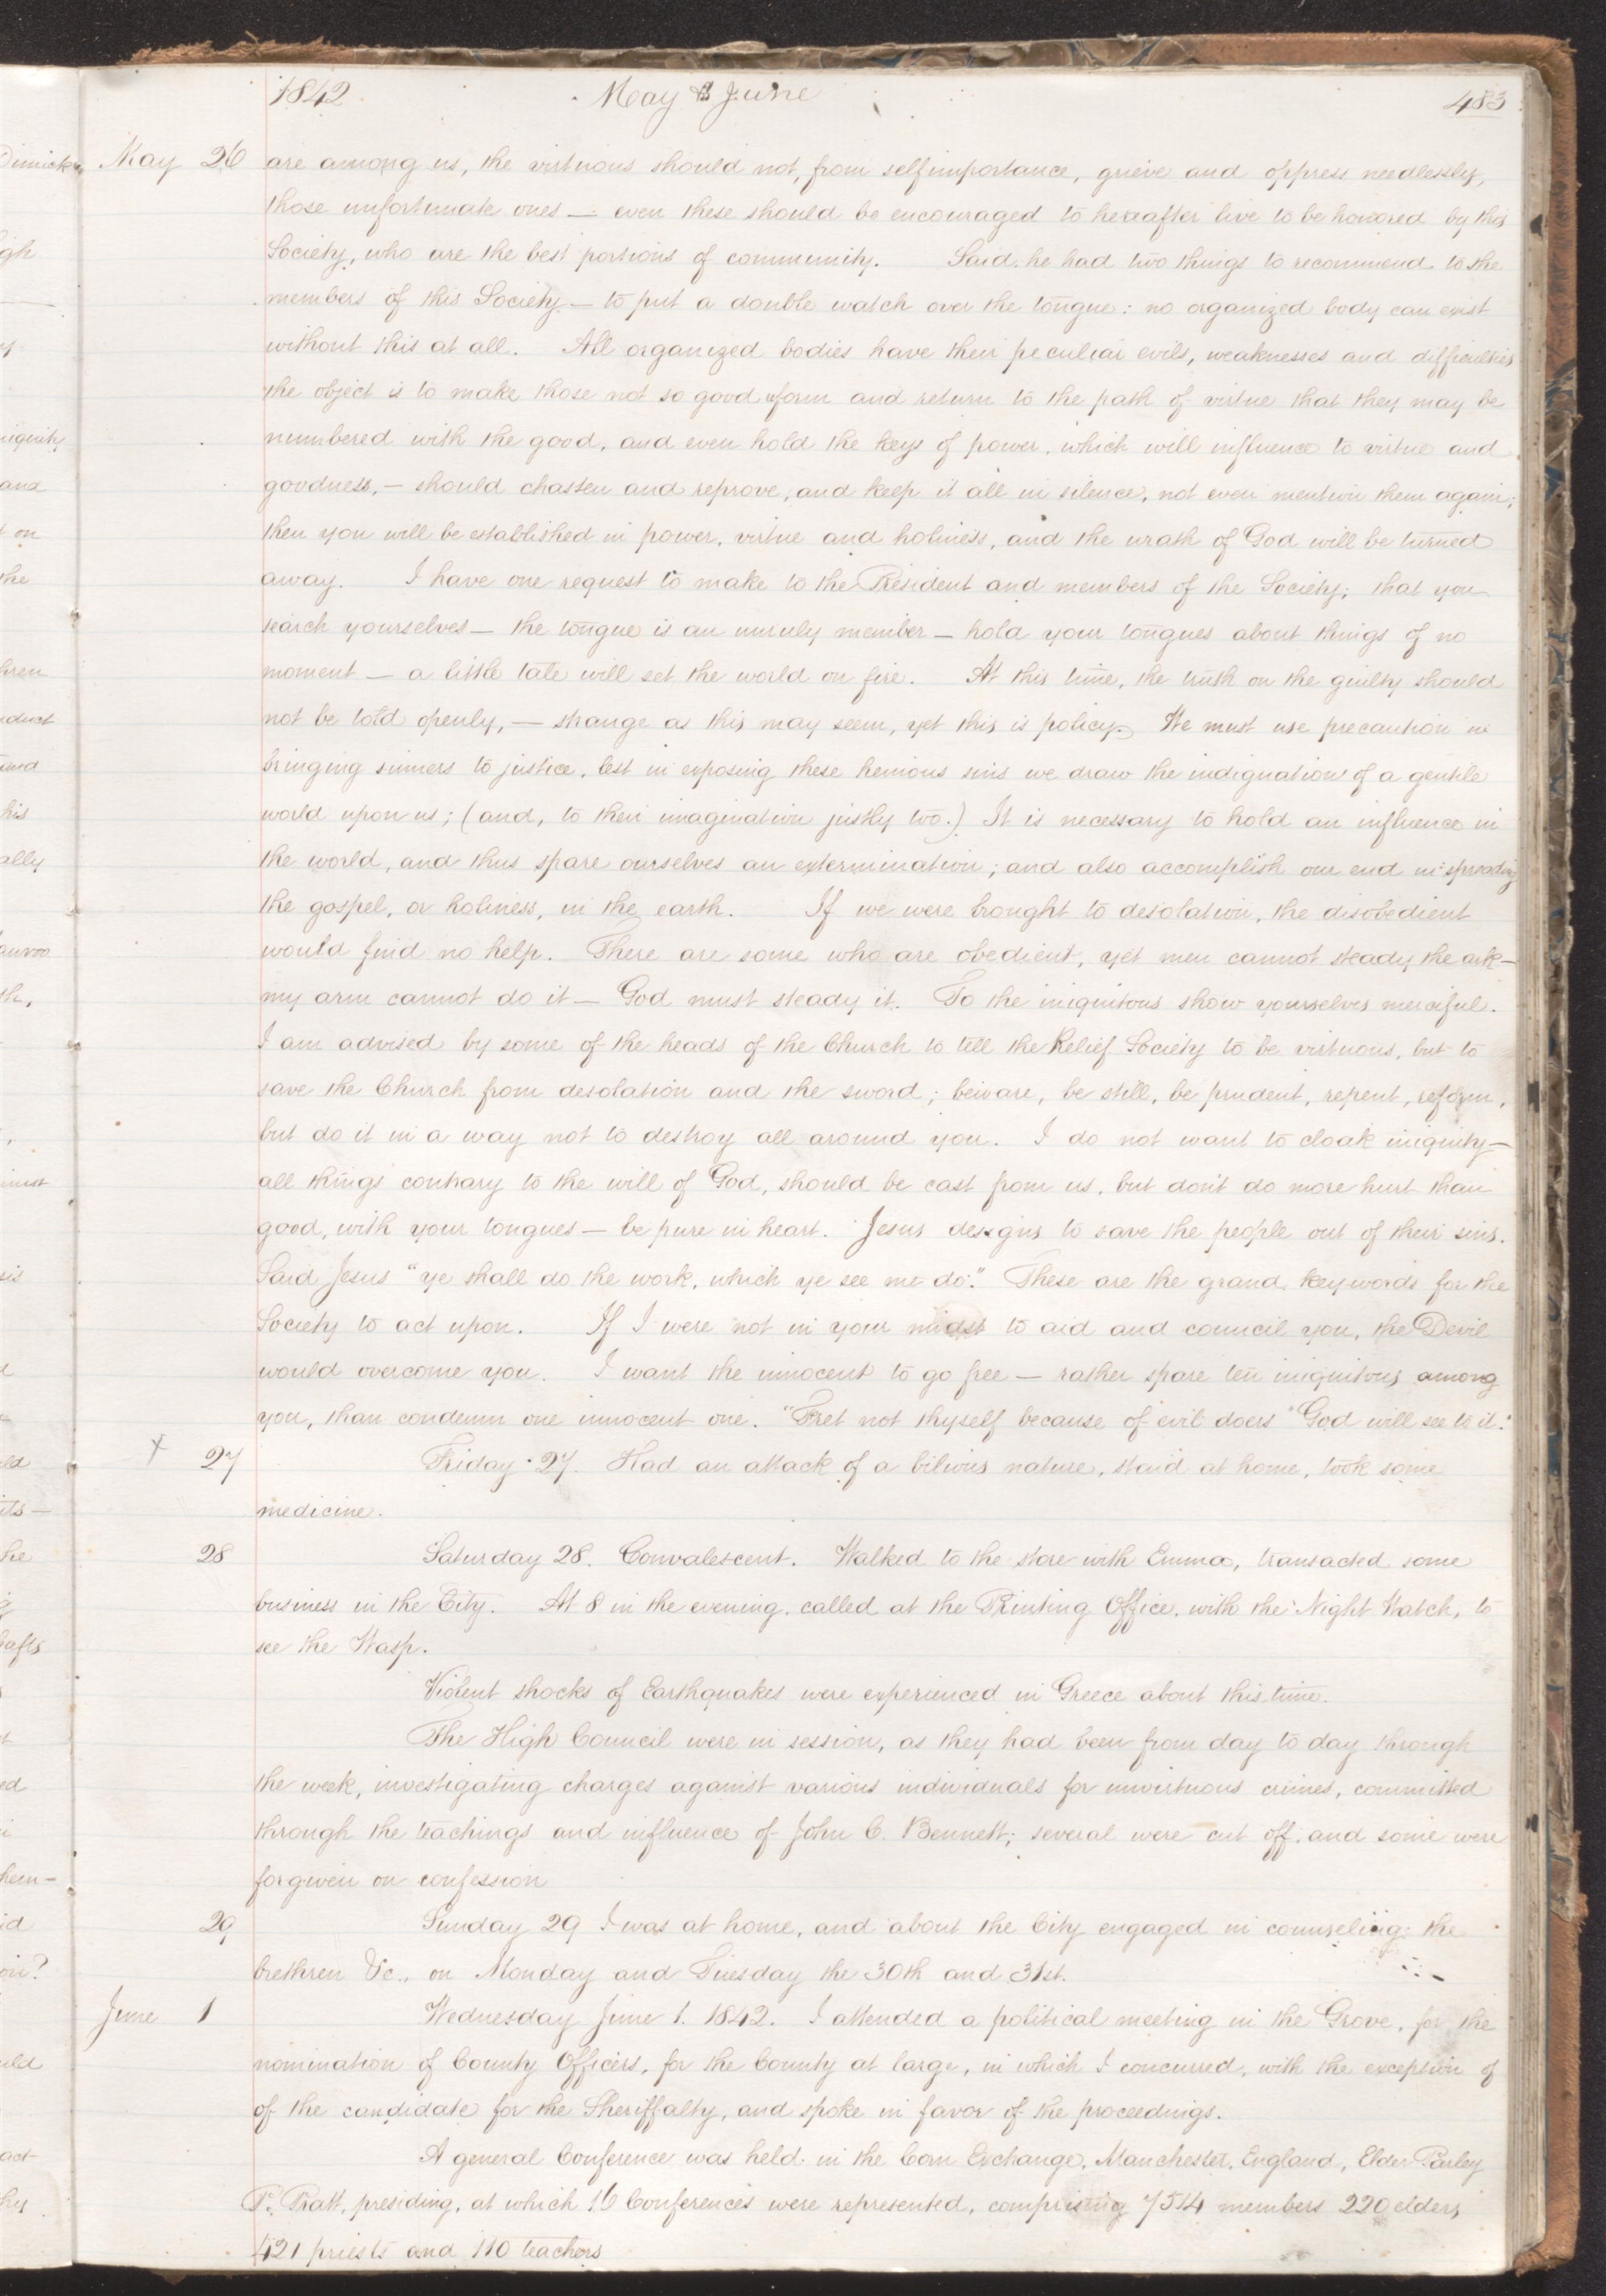 1842 May & June 483
May 26 are among us, the virtuous should not, from self importance, grieve and oppress needlessly,
those unfortunate ones — even these should be encouraged to hereafter live to be honored by this
Society, who are the best portions of community. Said he had two things to recommend to the
members of this Society — to put a double watch over the tongue: no organized body can exist
without this at all. All organized bodies have their peculiar evils, weaknesses and difficulties
the object is to make those not so good reform and return to the path of virtue that they may be
numbered with the good, and even hold the keys of power, which will influence to virtue and
goodness, — should chasten and reprove, and keep it all in silence, not even mention them again;
then you will be established in power, virtue and holiness, and the wrath of God will be turned
away. I have one request to make to the President and members of the Society; that you
search yourselves — the tongue is an unruly member — hold your tongues about things of no
moment — a little tale will set the world on fire. At this time, the truth on the guilty should
not be told openly, — strange as this may seem, yet this is policy. We must use precaution in
bringing sinners to justice, lest in exposing these heinous sins we draw the indignation of a gentile
world upon us; (and, to their imagination justly too.) It is necessary to hold an influence in
the world, and thus spare ourselves an extermination; and also accomplish our end in spreading
the gospel, or holiness, in the earth. If we were brought to desolation, the disobedient
would find no help. There are some who are obedient, yet men cannot steady the ark —
my arm cannot do it — God must steady it. To the iniquitous show yourselves merciful.
I am advised by some of the heads of the Church to tell the Relief Society to be virtuous, but to
save the Church from desolation and the sword; beware, be still, be prudent, repent, reform,
but do it in a way not to destroy all around you. I do not want to cloak iniquity —
all things contrary to the will of God, should be cast from us, but don't do more hurt than
good, with your tongues — be pure in heart. Jesus designs to save the people out of their sins.
Said Jesus "ye shall do the work, which ye see me do." These are the grand key-words for the
Society to act upon. If I were not in your midst to aid and council you, the Devil
would overcome you. I want the innocent to go free — rather spare ten iniquitous among
you, than condemn one innocent one. "Fret not thyself because of evil doers" God will see to it."
27 Friday 27. Had an attack of a bilious nature, staid at home, took some
medicine.
28 Saturday 28. Convalescent. Walked to the store with Emma, transacted some
business in the City. At 8 in the evening, called at the Printing Office, with the Night Watch, to
see the Wasp.
Violent shocks of Earthquakes were experienced in Greece about this time.
The High Council were in session, as they had been from day to day through
the week, investigating charges against various individuals for unvirtuous crimes, committed
through the teachings and influence of John C. Bennett; several were cut off, and some were
forgiven on confession
29 Sunday 29 I was at home, and about the City engaged in counseling the
brethren &c., on Monday and Tuesday the 30th and 31st.
June 1 Wednesday June 1. 1842. I attended a political meeting in the Grove, for the
nomination of County Officers, for the County at large, in which I concurred, with the exception of
of the candidate for the Sheriffalty, and spoke in favor of the proceedings.
A general Conference was held in the Corn Exchange, Manchester, England, Elder Parley
P. Pratt, presiding, at which 16 Conferences were represented, comprising 7514 members 220 elders,
421 priests and 110 teachers